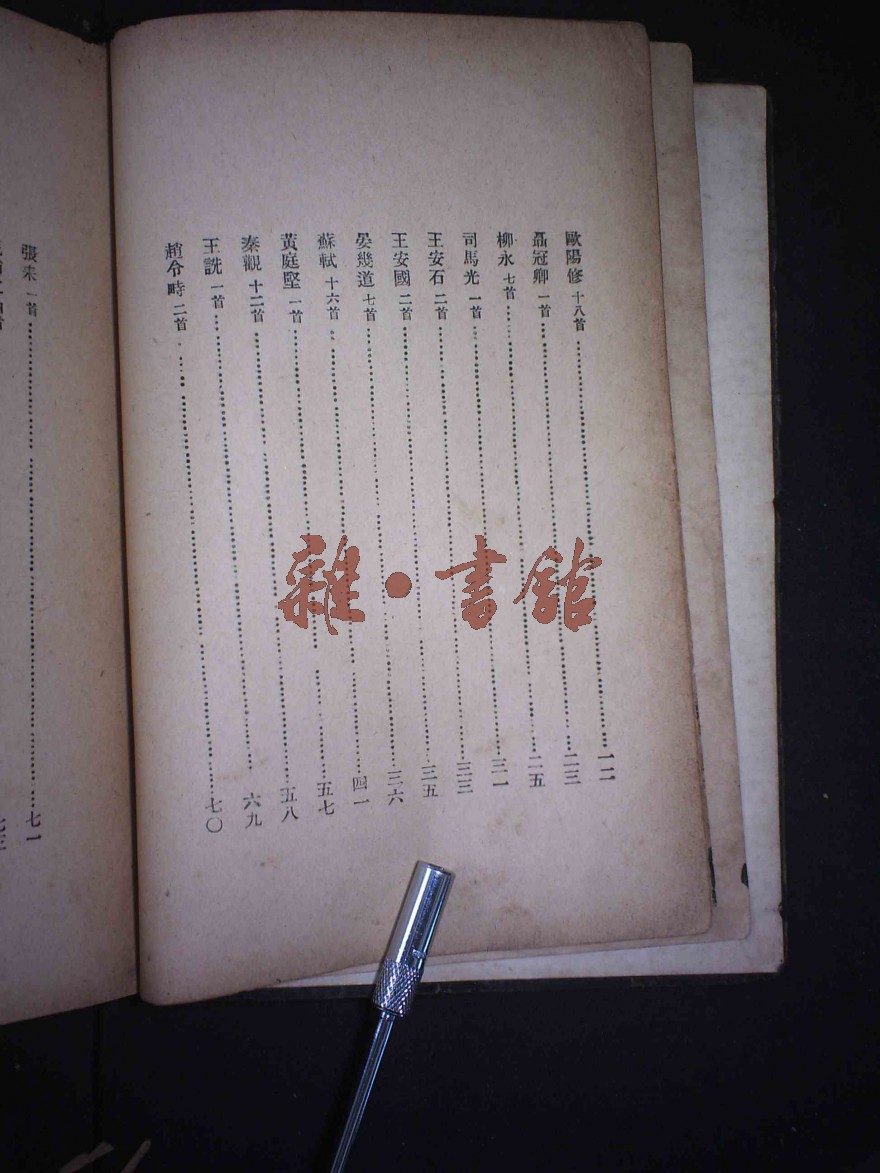 歐陽修 十八首……一二
聶冠卿 一首……二三
柳永 七首……二五
司馬光 一首……三一
王安石 二首……三三
王安國 二首……三五
晏幾道 七首……三六
蘇軾 十六首……四一
黃庭堅 一首……五七
秦觀 十二首……五八
王詵 一首……六九
趙令時 二首……七〇
張耒 一首……七一
雜·書館